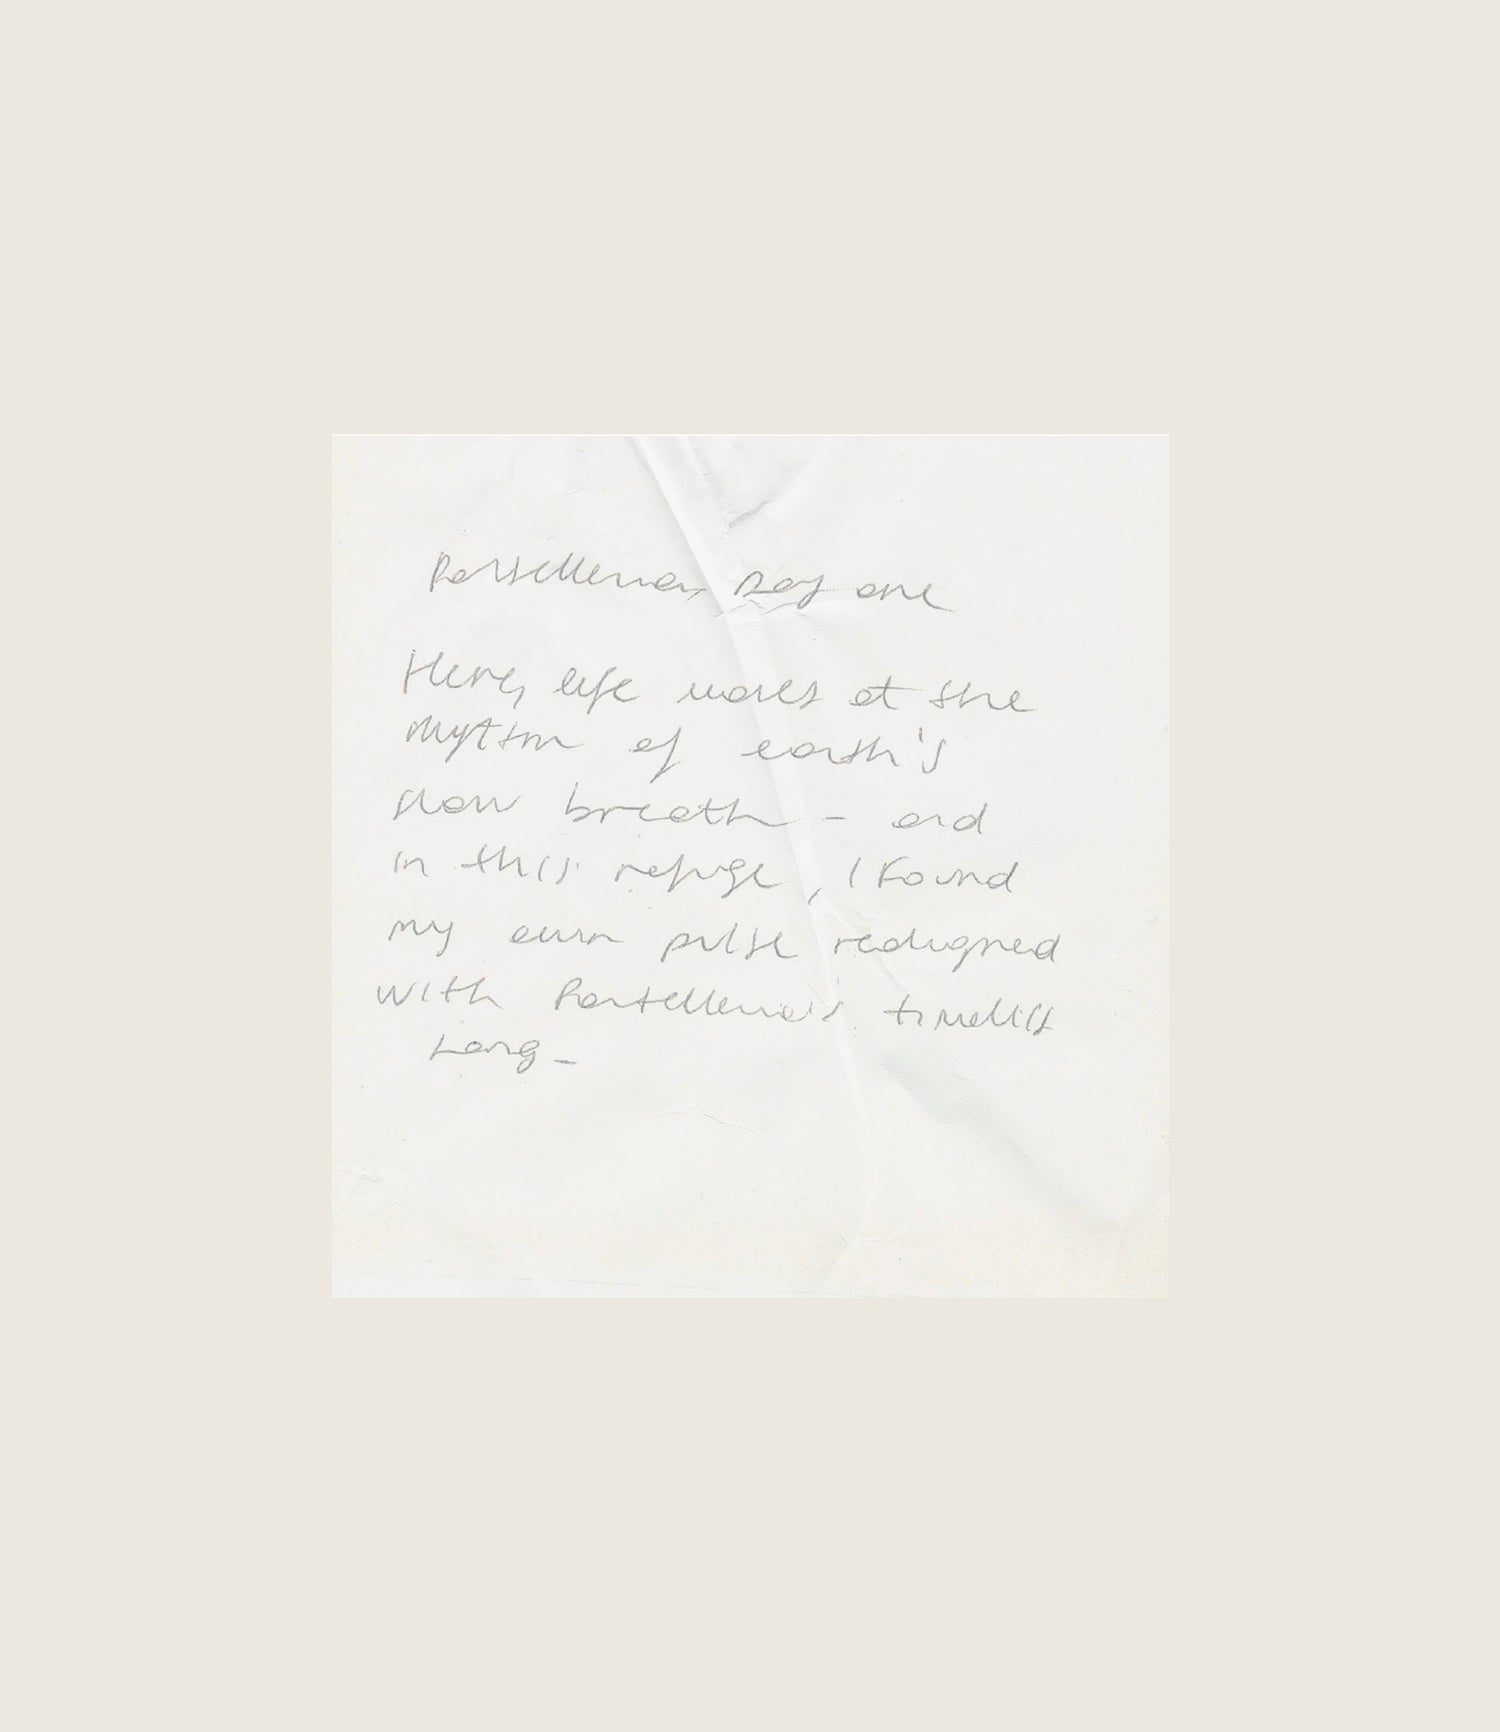 Pantelleria, Day one
Here, life moves at the
rhythm of earth's
slow breath – and
in this refuge, I found
my own pulse realigned
with Pantelleria's timeless
song –